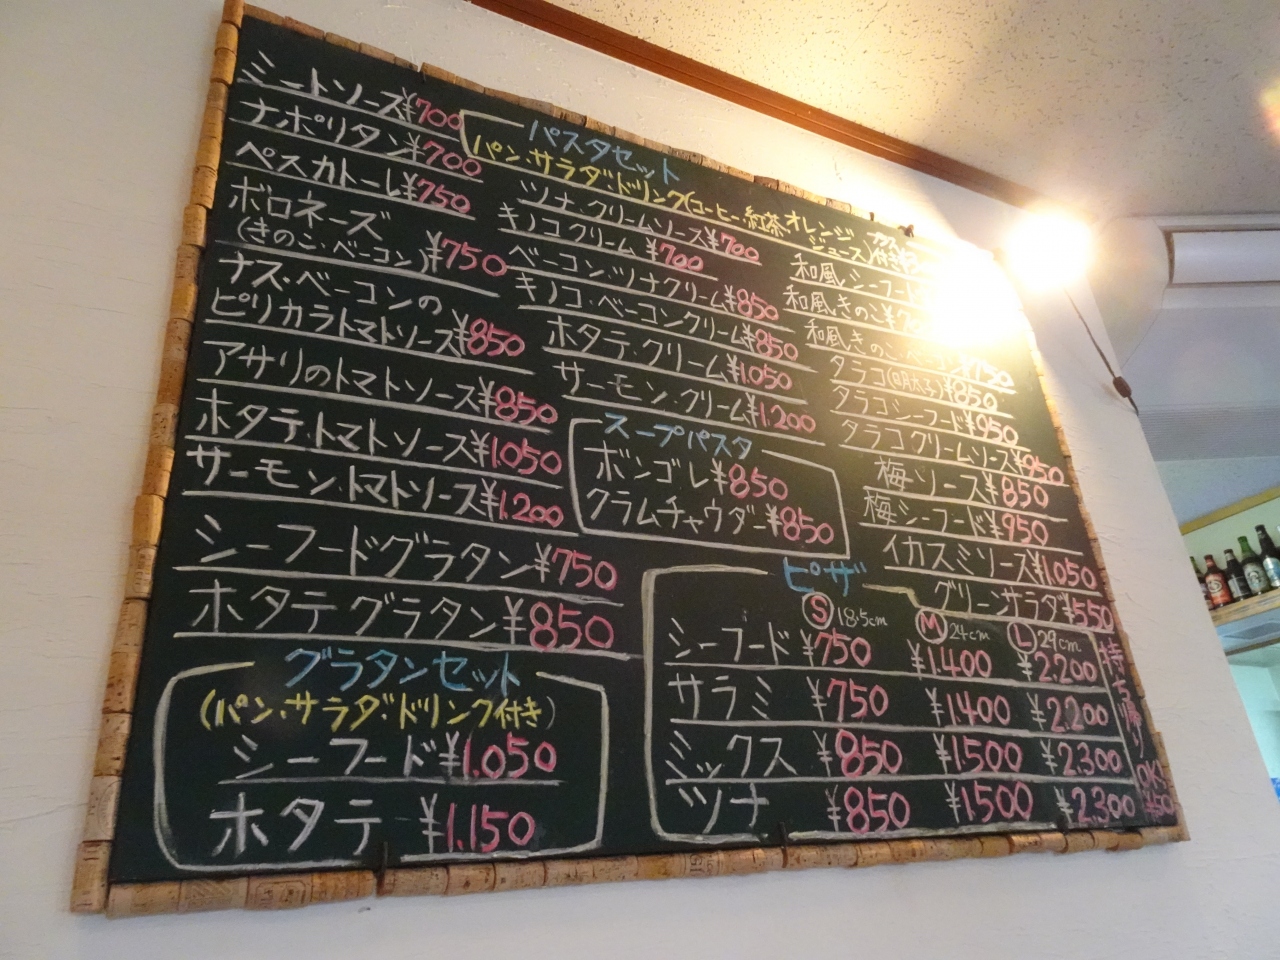 パスタセット
パン・サラダ・ドリンク(コーヒー・紅茶オレンジ
ジュース)付き
ミートソース¥700
ナポリタン¥700
ペスカトーレ¥750
ボロネーズ
(きのこ・ベーコン)¥750
ナス・ベーコンの
ピリカラトマトソース¥850
アサリのトマトソース¥850
ホタテ・トマトソース¥1.050
サーモン・トマトソース¥1.200
シーフードグラタン¥750
ホタテグラタン¥850
グラタンセット
(パン・サラダ・ドリンク付き)
シーフード¥1.050
ホタテ ¥1.150
ツナ・クリームソース¥700
キノコクリーム ¥700
ベーコン・ツナクリーム¥850
キノコ・ベーコンクリーム¥850
ホタテ・クリーム¥1.050
サーモン・クリーム¥1.200
スープパスタ
ボンゴレ¥850
クラムチャウダー¥850
和風シーフード
和風きのこ¥
和風きのこ・ベーコン
タラコ(明太子)¥850
タラコシーフード¥950
タラコクリームソース¥950
梅ソース¥850
梅シーフード¥950
イカスミソース¥1.050
グリーンサラダ¥550
ピザ
S 18.5cm M 24cm L 29cm
シーフード ¥750 ¥1.400 ¥2.200
サラミ ¥750 ¥1.400 ¥2.200
ミックス ¥850 ¥1.500 ¥2.300
ツナ ¥850 ¥1.500 ¥2.300
持ち帰りOK!
¥50